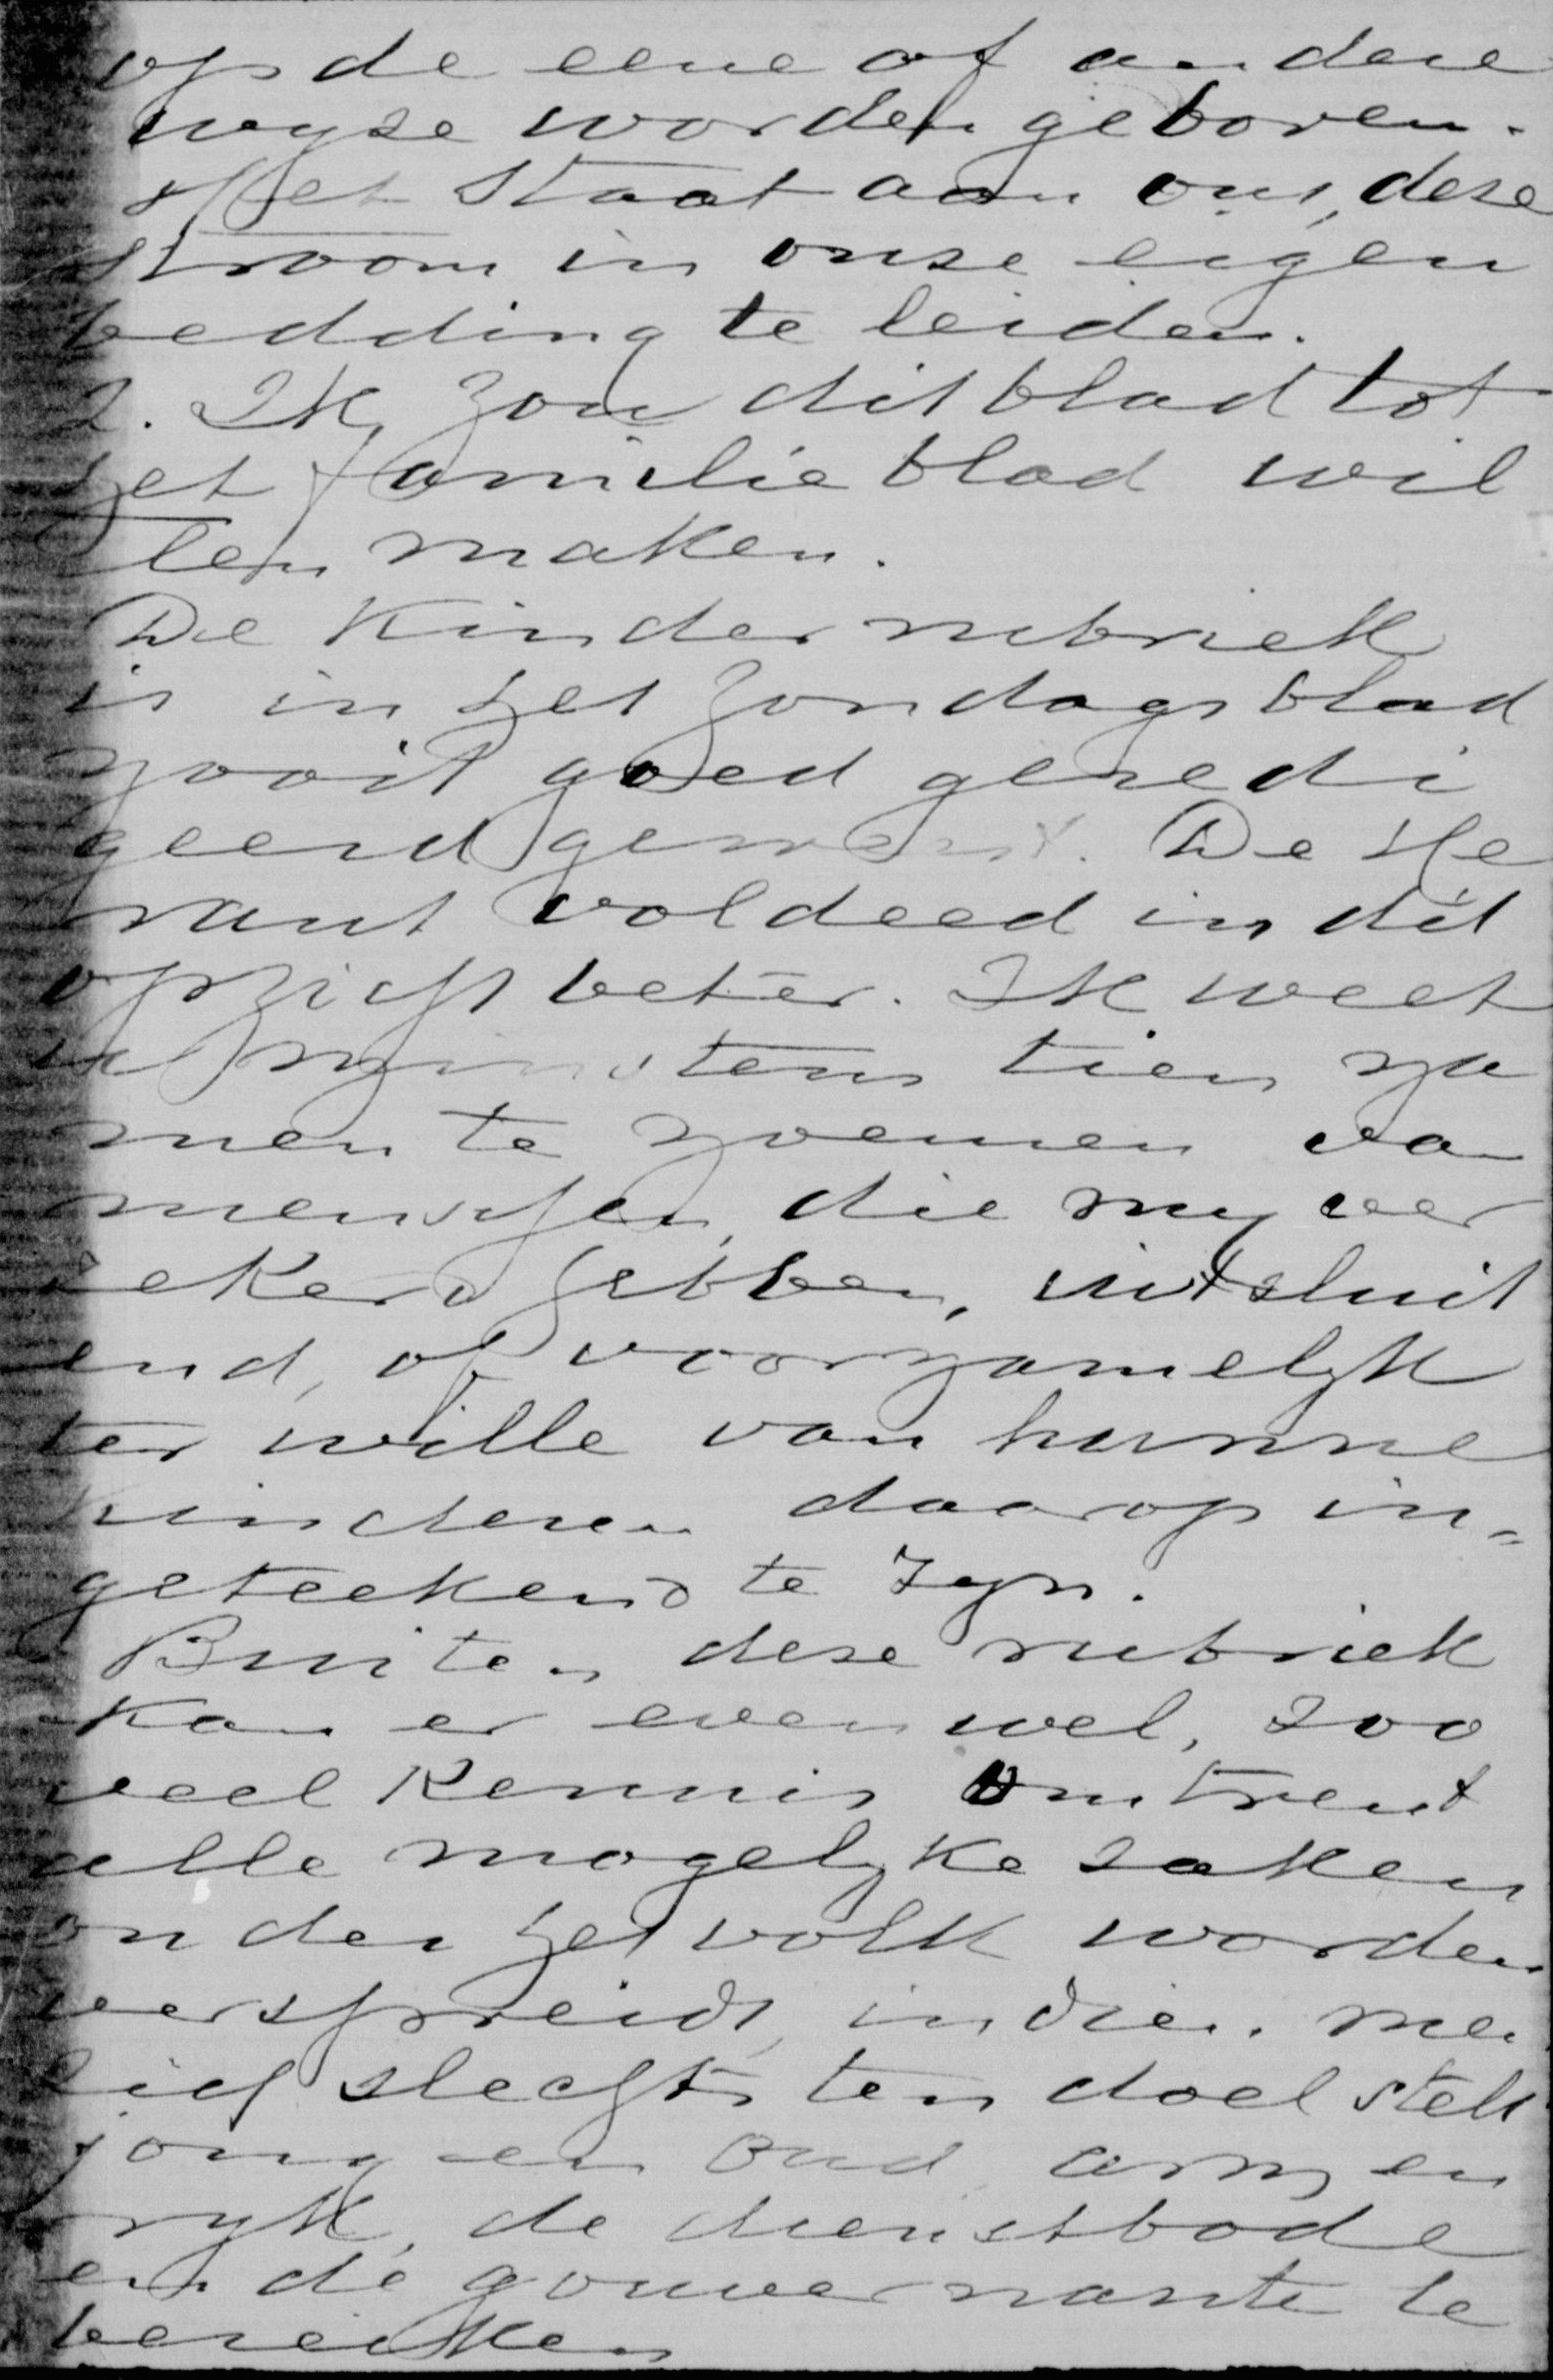 op de eene of andere
wyze worden geboren.
Het staat aan ons, deze
stroom in onze eigen
bedding te leiden.
2. Ik zou dit blad tot
het familieblad wil
len maken.
De kinderrubriek
is in het Zondagsblad
nooit goed geredi
geerd geweest. De He
raut voldeed in dit
opzicht beter. Ik weet
u minstens tien na
men te noemen van
menschen, die my ver
zekerd hebben, uitsluit
end, of voornamelyk
ter wille van hunne
kinderen daarop in=
geteekend te zyn.
Buiten deze rubriek
kan er evenwel, zoo
veel kennis omtrent
alle mogelyke zaken
onder het volk worden
verspreidt, indien men
zich slechts ten doel stelt
jong en oud, arm en
ryk, de dienstbode
en de gouvernante te
bereiken